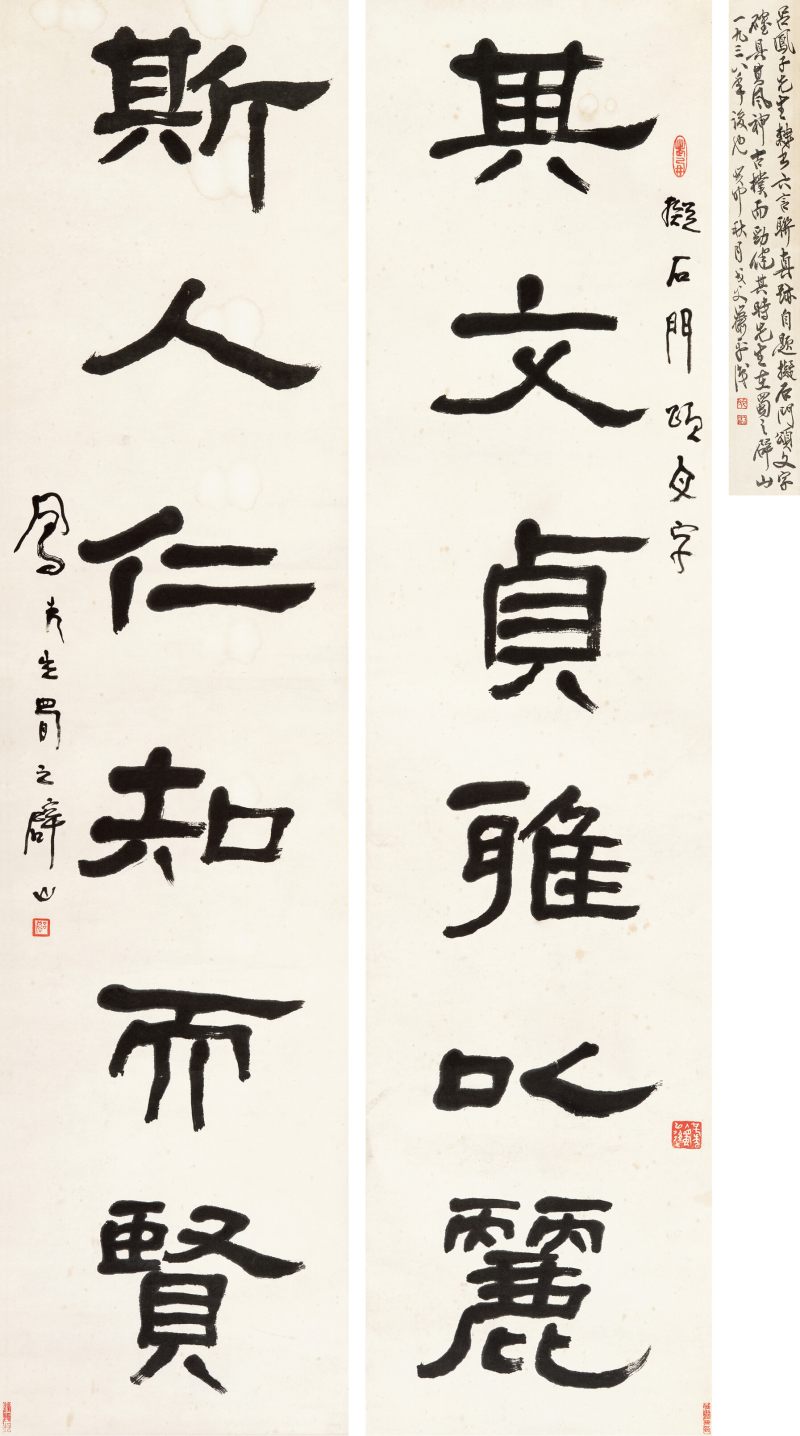 呂鳳子先生隸書六言聯真跡自題擬石門頌文字
確具其風神古樸而勁健其時先生在蜀之璧山
一九三八年後也 己卯秋月
擬石門頌文字
其文貞雅以麗
斯人仁知而賢
鳳先生蜀之璧山